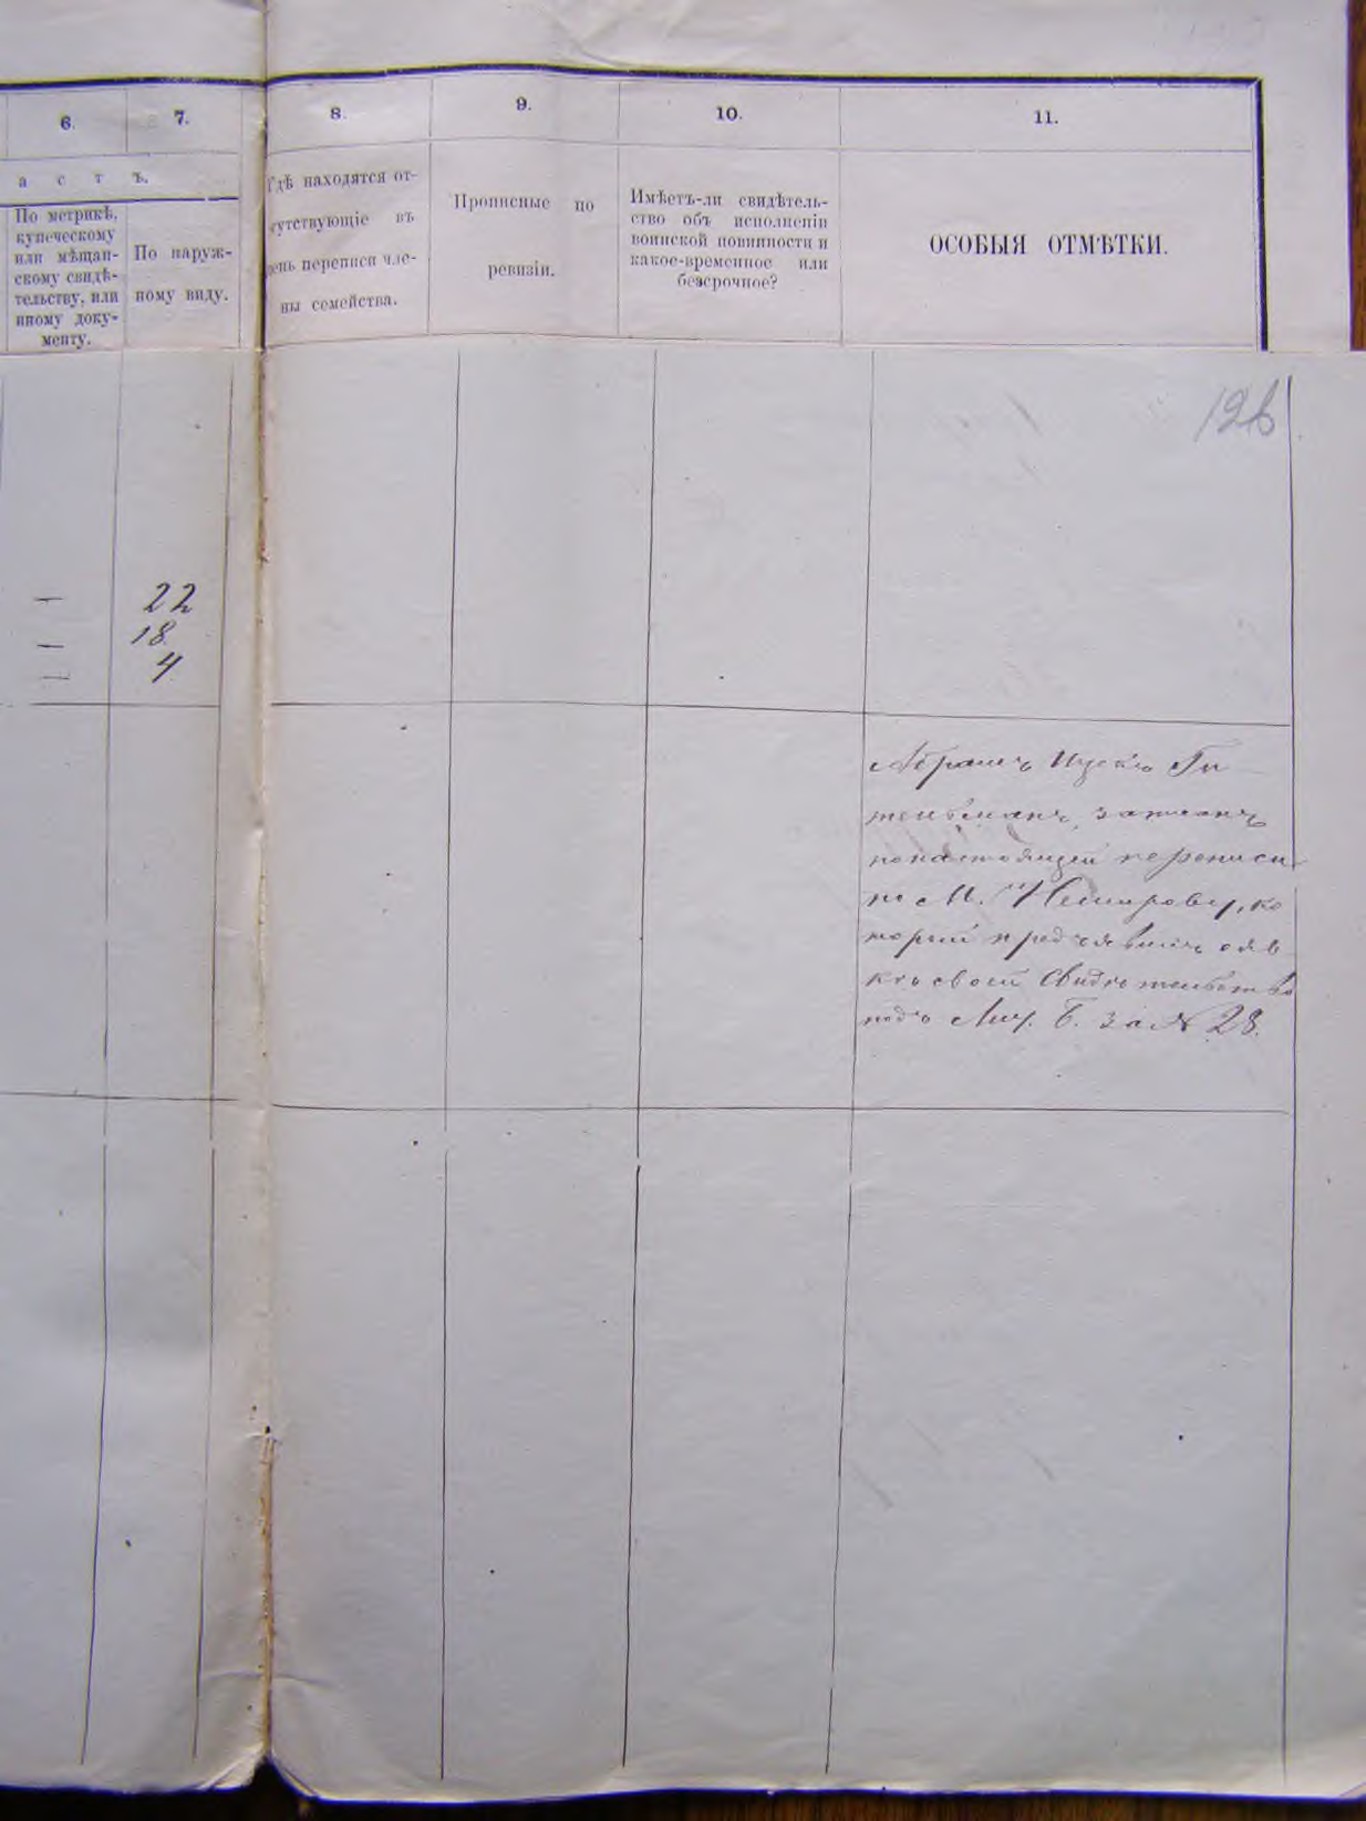 6.
7.
8.
9.
10.
11.
а с т ъ.
По метрикѣ,
купеческому
или мѣщан-
скому свидѣ-
тельству, или
иному доку-
менту.
По наруж-
ному виду.
Гдѣ находятся от-
сутствующіе въ
день переписи чле-
ны семейства.
Прописные по
ревизіи.
Имѣетъ-ли свидѣтель-
ство объ исполненіи
воинской повинности и
какое-временное или
безсрочное?
ОСОБЫЯ ОТМѢТКИ.
126
— 22
— 18.
— 4
Абрамъ Ицекъ Ги
тельманъ, записанъ
по настоящей переписи
по М. Немирову, ко
торый предъявилъ
своей Свидѣтельство
подъ Лит. Б. за № 28.